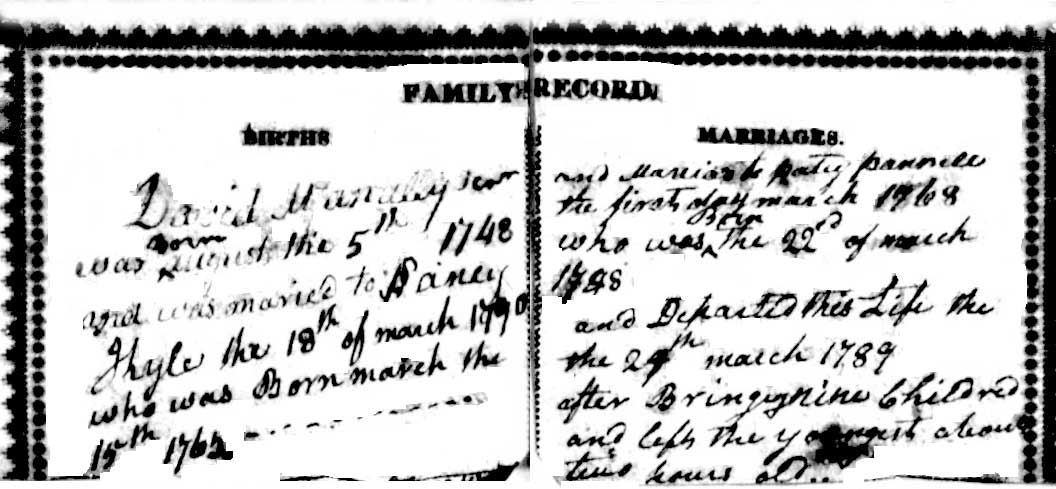 FAMILY RECORD
BIRTHS
David McAnally Senr
was Born august the 5th 1748
and was maried to
the 18th of march 1790
who was Born march the
15th 1765
MARRIAGES.
and Maried to patty pannell
the first day march 1768
who was Born the 22nd of march
1748
and Departed this Life the
the 29th march 1789
after Bringeg nine Children
and left the youngest about
two hours old